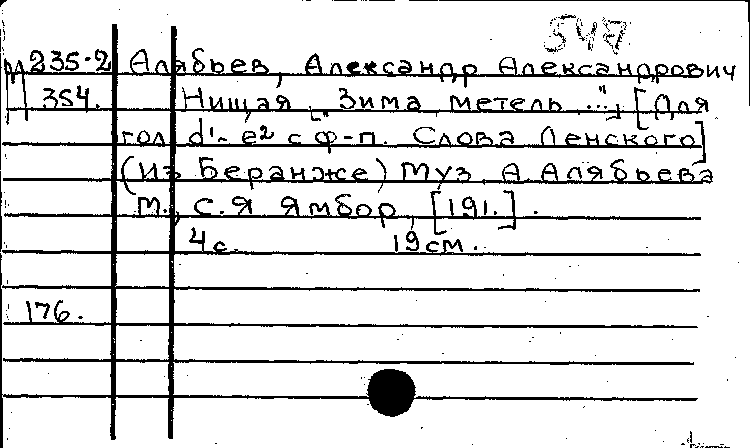 547
М 235-2 Алябьев, Александр Александрович
354. Нищая ["Зима, метель..."] [Для
гол. d¹-e² с ф-п. Слова Ленского]
(Из Беранже) Муз. А. Алябьева
М., С. Я. Ямбор, [191.].
4 с. 19 см.
176.